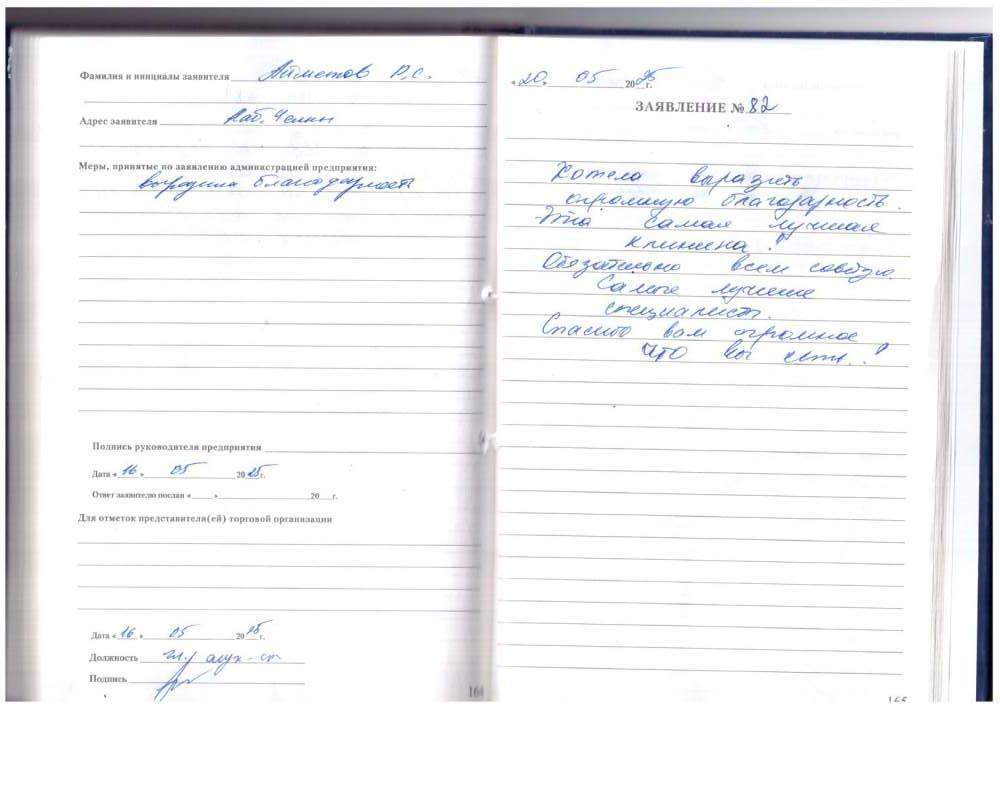 Фамилия и инициалы заявителя Айметов Р.С.
Адрес заявителя Наб. Челны
Меры, принятые по заявлению администрацией предприятия:
выразила благодарность
Подпись руководителя предприятия
Дата «16» 05 2025г.
Ответ заявителю послан « » 20 г.
Для отметок представителя(ей) торговой организации
Дата «16» 05 2025г.
Должность
Подпись
164
«20» 05 2025г.
ЗАЯВЛЕНИЕ № 82
Хотела выразить
огромную благодарность.
Это самая лучшая
клиника!
Обязательно всем советую.
Самые лучшие
специалисты.
Спасибо вам огромное
что вы есть.!
165